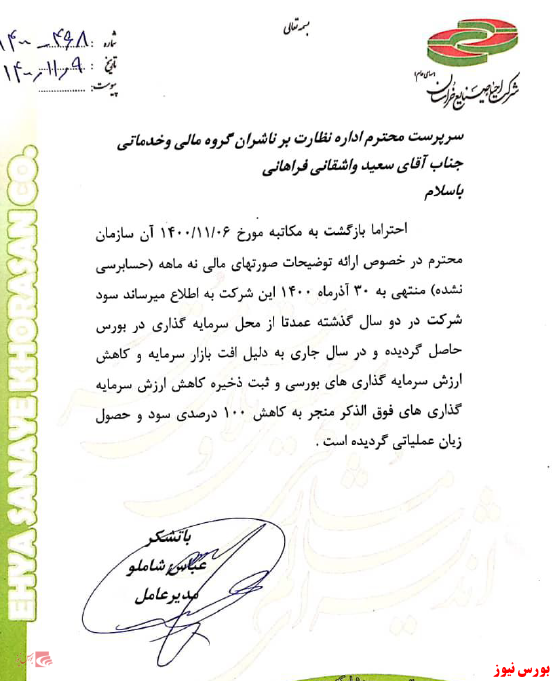 بسمه تعالی
شماره : ۱۴۰۰-۴۶۸
تاریخ : ۱۴۰۰/۱۱/۹
پیوست:
شرکت احیا صنایع خراسان
(سهامی عام)
سرپرست محترم اداره نظارت بر ناشران گروه مالی وخدماتی
جناب آقای سعید واشقانی فراهانی
باسلام
احتراما بازگشت به مکاتبه مورخ ۱۴۰۰/۱۱/۰۶ آن سازمان
محترم در خصوص ارائه توضیحات صورتهای مالی نه ماهه (حسابرسی
نشده) منتهی به ۳۰ آذرماه ۱۴۰۰ این شرکت به اطلاع میرساند سود
شرکت در دو سال گذشته عمدتا از محل سرمایه گذاری در بورس
حاصل گردیده و در سال جاری به دلیل افت بازار سرمایه و کاهش
ارزش سرمایه گذاری های بورسی و ثبت ذخیره کاهش ارزش سرمایه
گذاری های فوق الذکر منجر به کاهش ۱۰۰ درصدی سود و حصول
زیان عملیاتی گردیده است .
باتشکر
عباس شاملو
مدیرعامل
EHYA SANAYE KHORASAN CO.
بورس نیوز